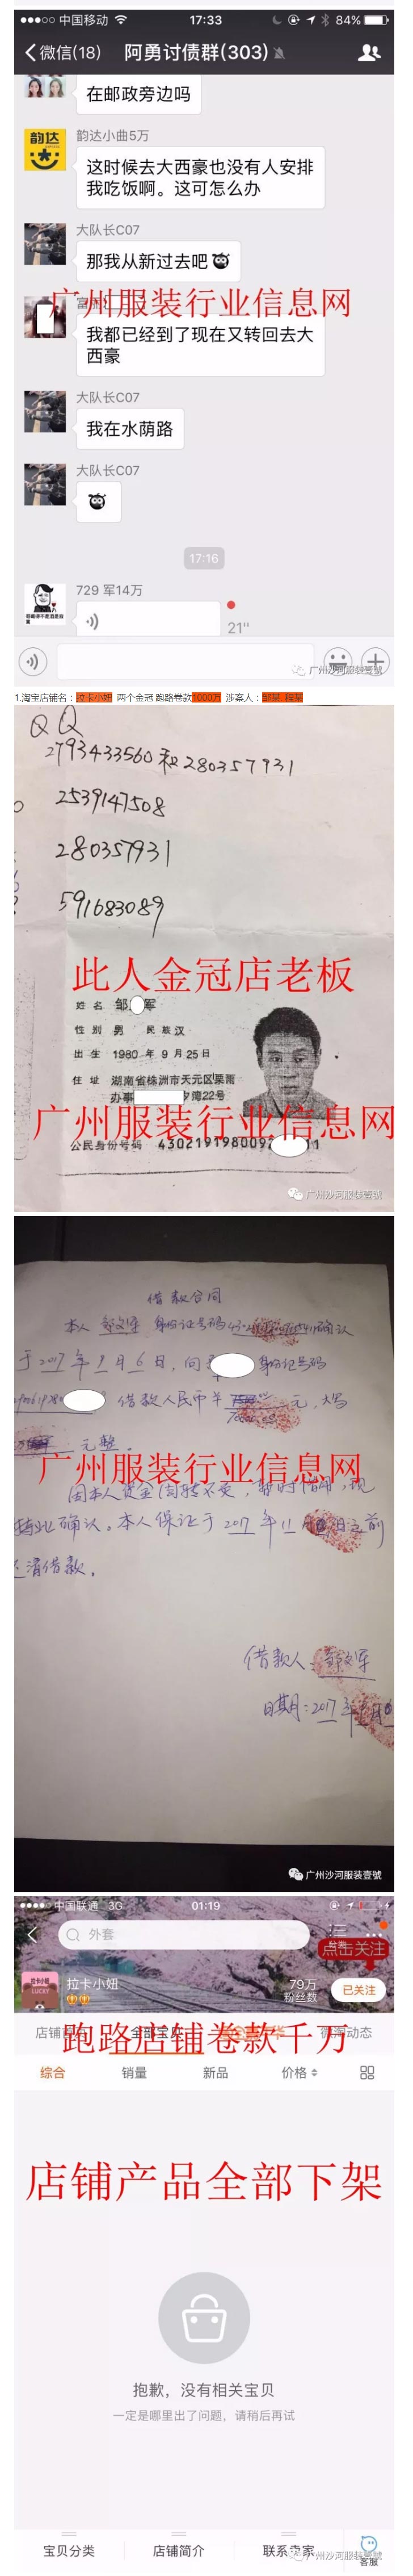 中国移动 17:33 84%
微信(18) 阿勇讨债群(303)
在邮政旁边吗
韵达小曲5万
韵达
这时候去大西豪也没有人安排
我吃饭啊。这可怎么办
大队长C07
那我从新过去吧
广州服装行业信息网
我都已经到了现在又转回去大
西豪
大队长C07
我在水荫路
大队长C07
17:16
729 军14万
21"
广州沙河服装壹號
1.淘宝店铺名：拉卡小妞 两个金冠 跑路卷款1000万 涉案人：邹某 程某
QQ
2793433560和280357931
2539147508
280357931
591683089
此人金冠店老板
姓名 邹 军
性别 男 民族 汉
出生 1980 年 9 月 25 日
住址 湖南省株洲市天元区栗雨
办事 22号
广州服装行业信息网
公民身份号码
广州沙河服装壹號
借款合同
本人 身份证号码 确认
于2017年9月6日，向 身份证号码
借款人民币 元，大写
元整。
广州服装行业信息网
因本人资金周转不灵，暂时借用，现
确认。本人保证于2017年11月 日之前
清借款。
借款人：
日期：2017年
广州沙河服装壹號
中国联通 3G 01:19
外套
点击关注
拉卡小妞
LUCKY
79万
粉丝数
已关注
跑路店铺卷款千万
全部宝贝
微淘动态
综合 销量 新品 价格
店铺产品全部下架
抱歉，没有相关宝贝
一定是哪里出了问题，请稍后再试
宝贝分类 店铺简介 联系卖家 客服
广州沙河服装壹號